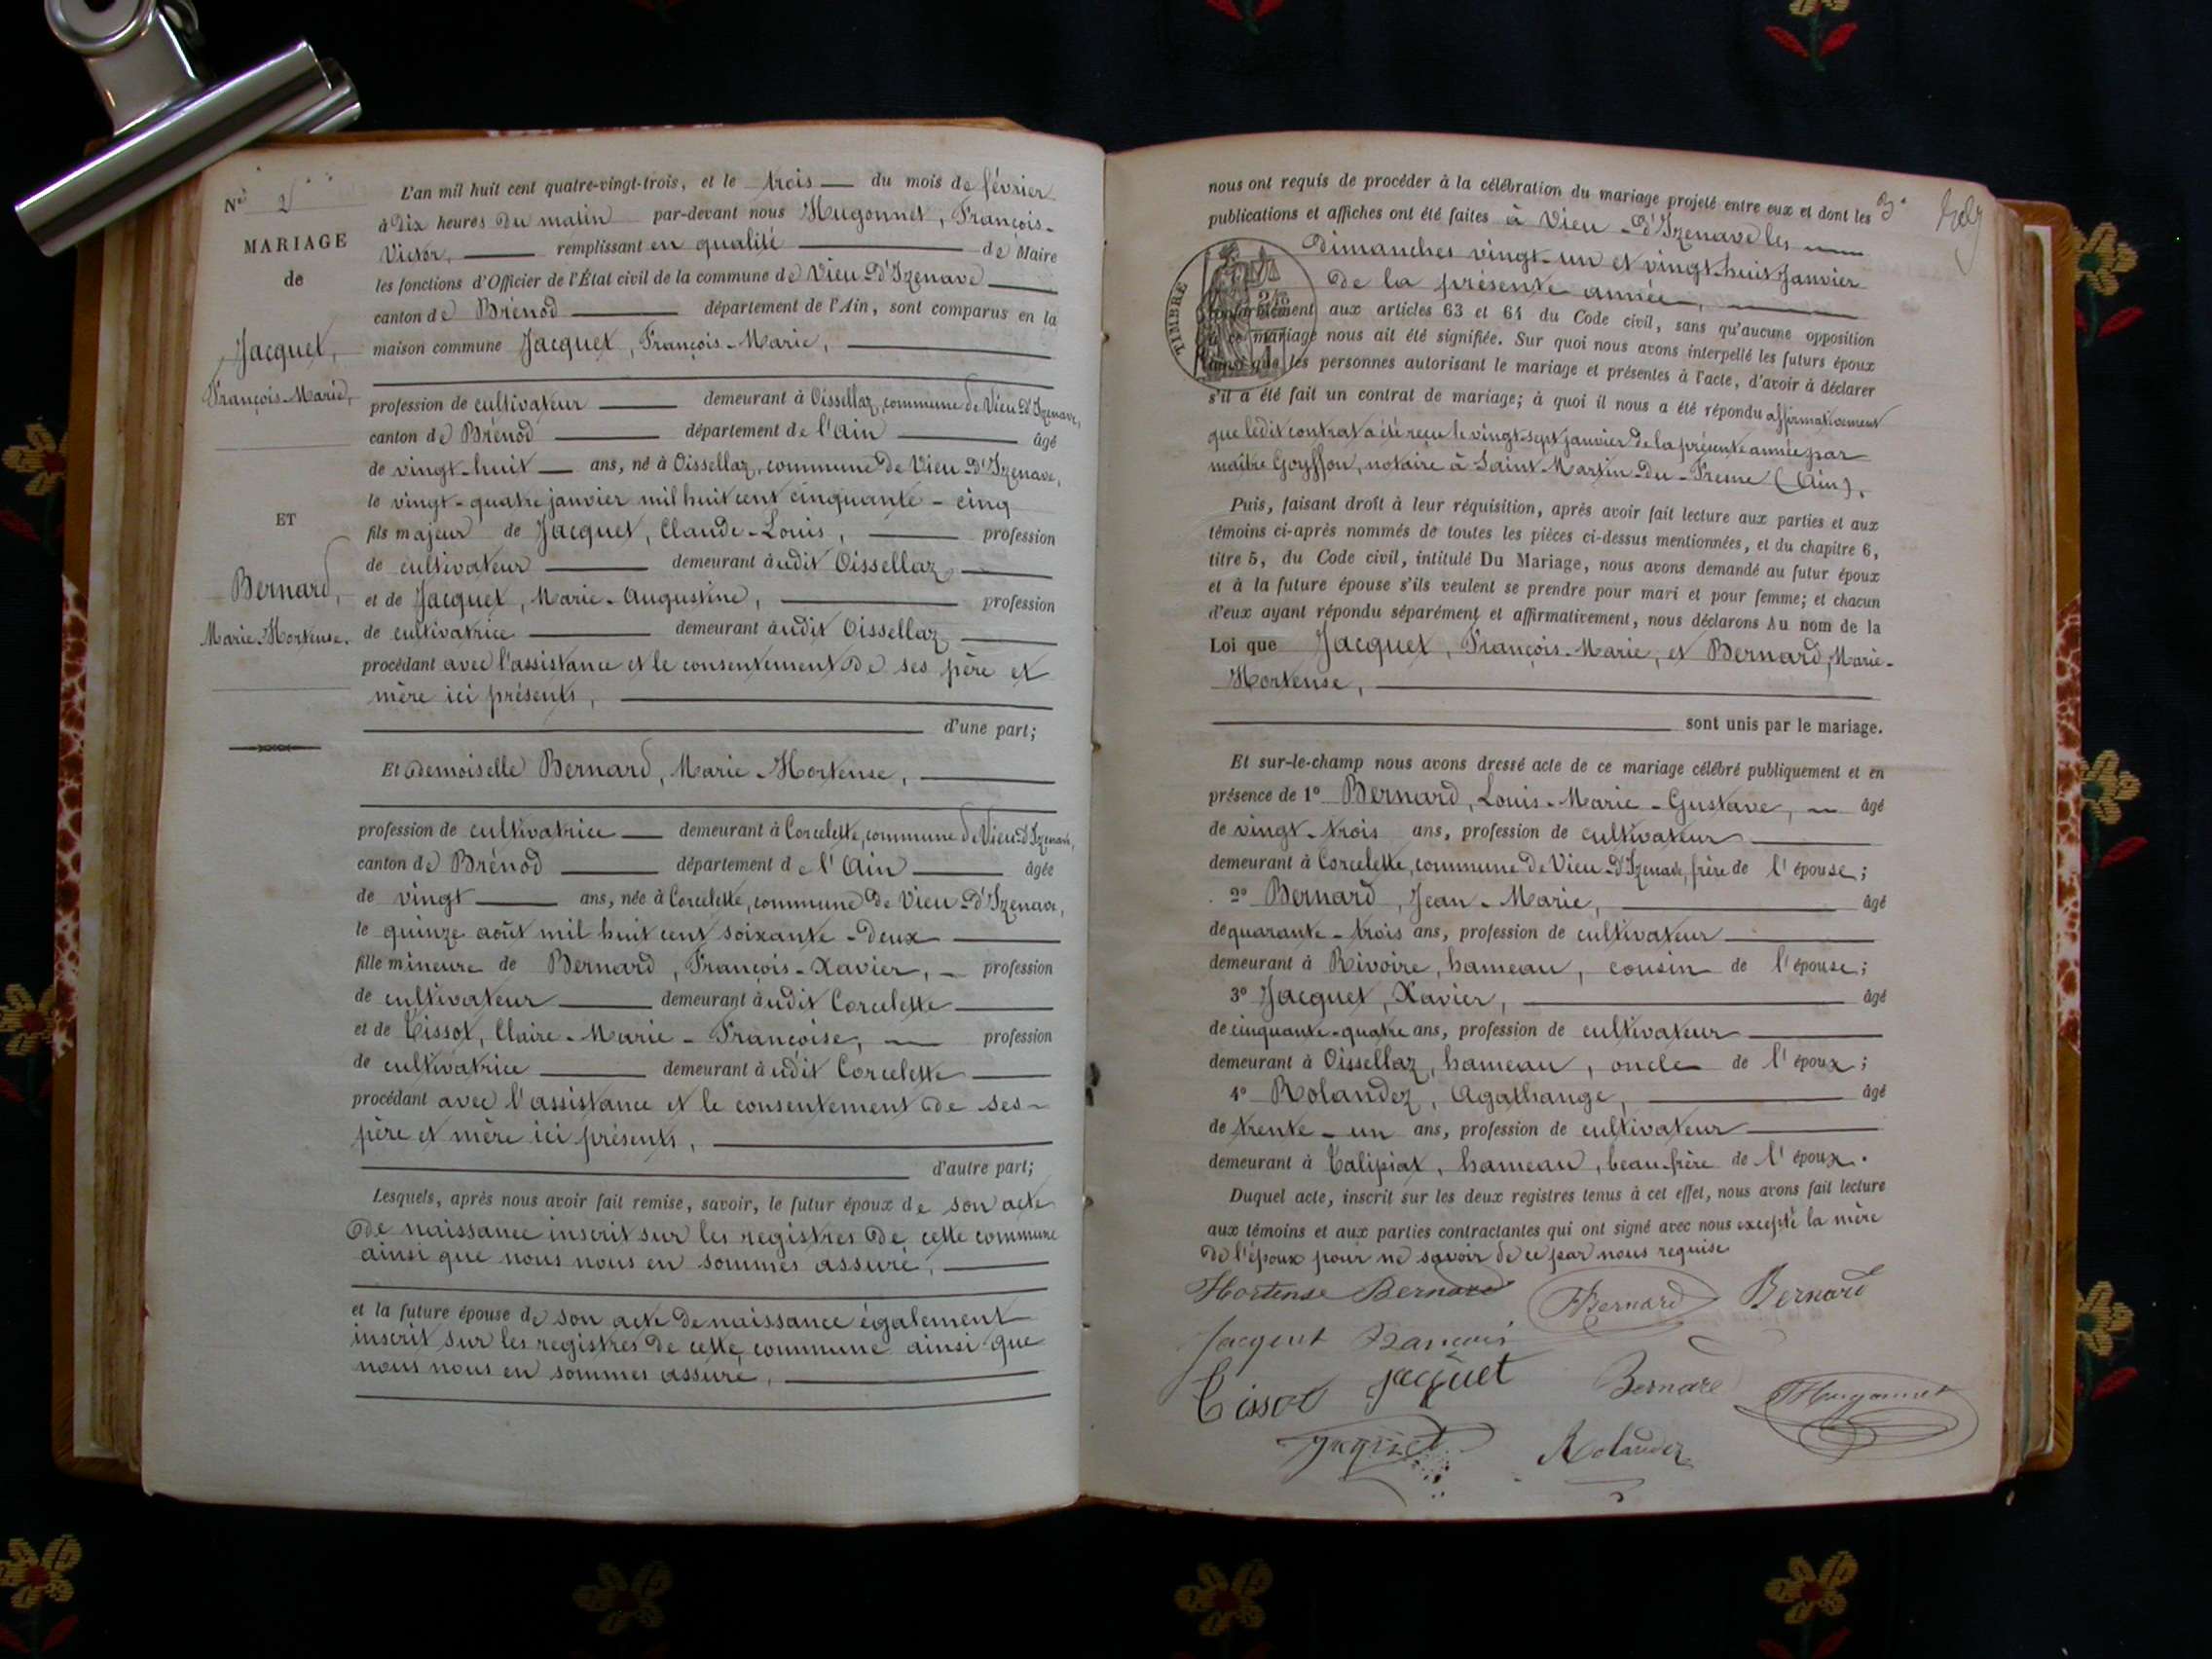 N° 2
MARIAGE
de
Jacquet,
François-Marie,
ET
Bernard,
Marie-Hortense.
L'an mil huit cent quatre-vingt-trois, et le trois du mois de février
à Dix heures du matin par-devant nous Hugonnet, François-
Victor, remplissant en qualité de Maire
les fonctions d'Officier de l'État civil de la commune de Vieu-d'Izenave
canton de Brénod département de l'Ain, sont comparus en la
maison commune Jacquet, François-Marie,
profession de cultivateur demeurant à Oissellaz, commune de Vieu-d'Izenave,
canton de Brénod département de l'Ain âgé
de vingt-huit ans, né à Oissellaz, commune de Vieu-d'Izenave,
le vingt-quatre janvier mil huit cent cinquante-cinq
fils majeur de Jacquet, Claude-Louis, profession
de cultivateur demeurant àudit Oissellaz
et de Jacquet, Marie-Augustine, profession
de cultivatrice demeurant àudit Oissellaz
procédant avec l'assistance et le consentement de ses père et
mère ici présents,
d'une part;
Et demoiselle Bernard, Marie-Hortense,
profession de cultivatrice demeurant à Corcelette, commune de Vieu-d'Izenave,
canton de Brénod département de l'Ain âgée
de vingt ans, née à Corcelette, commune de Vieu-d'Izenave,
le quinze août mil huit cent soixante-deux
fille mineure de Bernard, François-Xavier, profession
de cultivateur demeurant àudit Corcelette
et de Tissot, Claire-Marie-Françoise, profession
de cultivatrice demeurant àudit Corcelette
procédant avec l'assistance et le consentement de ses
père et mère ici présents,
d'autre part;
Lesquels, après nous avoir fait remise, savoir, le futur époux de son acte
de naissance inscrit sur les registres de cette commune
ainsi que nous nous en sommes assuré,
et la future épouse de son acte de naissance également
inscrit sur les registres de cette commune ainsi que
nous nous en sommes assuré,
nous ont requis de procéder à la célébration du mariage projeté entre eux et dont les
publications et affiches ont été faites à Vieu-d'Izenave les
dimanches vingt-un et vingt-huit janvier
de la présente année,
TIMBRE
conformément aux articles 63 et 64 du Code civil, sans qu'aucune opposition
à ce mariage nous ait été signifiée. Sur quoi nous avons interpellé les futurs époux
ainsi que les personnes autorisant le mariage et présentes à l'acte, d'avoir à déclarer
s'il a été fait un contrat de mariage; à quoi il nous a été répondu affirmativement
que ledit contrat a été reçu le vingt-sept janvier de la présente année par
maître Goyffon, notaire à Saint-Martin-du-Fresne (Ain).
Puis, faisant droit à leur réquisition, après avoir fait lecture aux parties et aux
témoins ci-après nommés de toutes les pièces ci-dessus mentionnées, et du chapitre 6,
titre 5, du Code civil, intitulé Du Mariage, nous avons demandé au futur époux
et à la future épouse s'ils veulent se prendre pour mari et pour femme; et chacun
d'eux ayant répondu séparément et affirmativement, nous déclarons Au nom de la
Loi que Jacquet, François-Marie, et Bernard, Marie-
Hortense,
sont unis par le mariage.
Et sur-le-champ nous avons dressé acte de ce mariage célébré publiquement et en
présence de 1° Bernard, Louis-Marie-Gustave, âgé
de vingt-trois ans, profession de cultivateur
demeurant à Corcelette, commune de Vieu-d'Izenave, frère de l'épouse;
2° Bernard, Jean-Marie, âgé
de quarante-trois ans, profession de cultivateur
demeurant à Rivoire, hameau, cousin de l'épouse;
3° Jacquet, Xavier, âgé
de cinquante-quatre ans, profession de cultivateur
demeurant à Oissellaz, hameau, oncle de l'époux;
4° Rolandez, Agathange, âgé
de trente-un ans, profession de cultivateur
demeurant à Talipiat, hameau, beau-frère de l'époux.
Duquel acte, inscrit sur les deux registres tenus à cet effet, nous avons fait lecture
aux témoins et aux parties contractantes qui ont signé avec nous excepté la mère
de l'époux pour ne savoir de ce par nous requise
Hortense Bernard Bernard Bernard
Jacquet François
Tissot Jacquet Bernard Hugonnet
Jacquet Rolandez